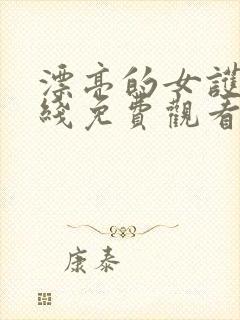 漂亮的女護
綫免費觀看
康泰